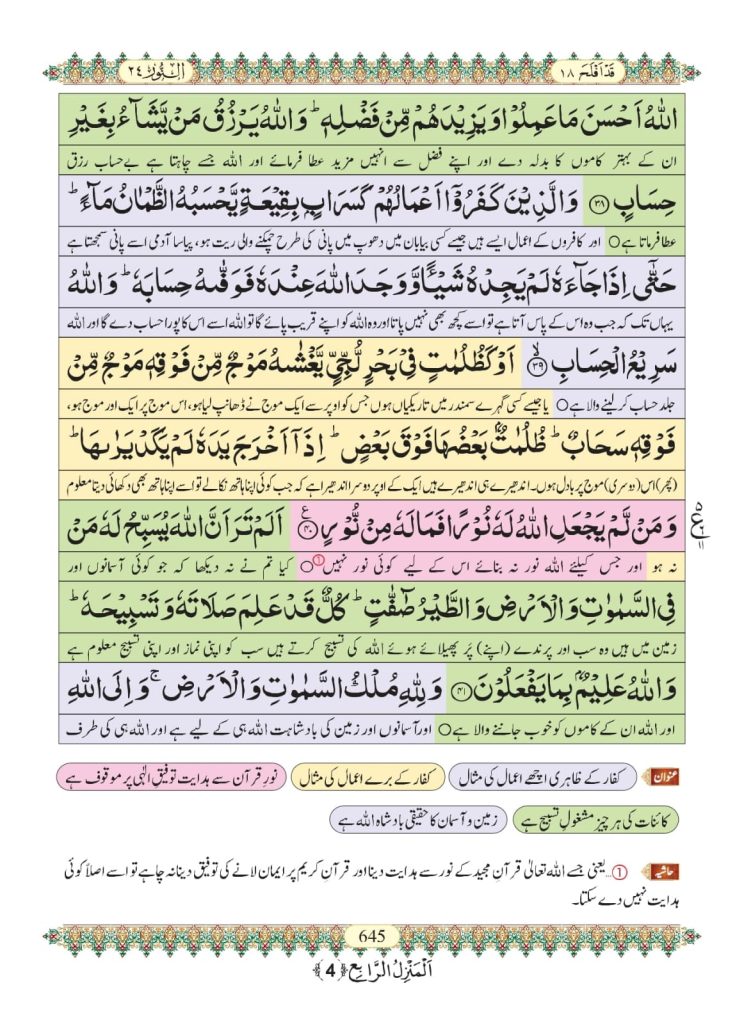 قَدْ اَفْلَحَ ١٨
اَلنُّوْر ٢٤
اللّٰهُ اَحْسَنَ مَا عَمِلُوْا وَ یَزِیْدَهُمْ مِّنْ فَضْلِهٖؕ وَ اللّٰهُ یَرْزُقُ مَنْ یَّشَآءُ بِغَیْرِ
ان کے بہتر کاموں کا بدلہ دے اور اپنے فضل سے انہیں مزید عطا فرمائے اور اللہ جسے چاہتا ہے بے حساب رزق
حِسَابٍ ﴿۳۸﴾ وَ الَّذِیْنَ كَفَرُوْۤا اَعْمَالُهُمْ كَسَرَابٍۭ بِقِیْعَةٍ یَّحْسَبُهُ الظَّمْاٰنُ مَآءًؕ
عطا فرماتا ہے○ اور کافروں کے اعمال ایسے ہیں جیسے کسی بیابان میں دھوپ میں پانی کی طرح چمکنے والی ریت ہو، پیاسا آدمی اسے پانی سمجھتا ہے
حَتّٰۤی اِذَا جَآءَهٗ لَمْ یَجِدْهُ شَیْــٴًـا وَّ وَجَدَ اللّٰهَ عِنْدَهٗ فَوَفّٰىهُ حِسَابَهٗؕ وَ اللّٰهُ
یہاں تک کہ جب وہ اس کے پاس آتا ہے تو اسے کچھ بھی نہیں پاتا اور وہ اللہ کو اپنے قریب پائے گا تو اللہ اسے اس کا پورا حساب دے گا اور اللہ
سَرِیْعُ الْحِسَابِۙ ﴿۳۹﴾ اَوْ كَظُلُمٰتٍ فِیْ بَحْرٍ لُّجِّیٍّ یَّغْشٰىهُ مَوْجٌ مِّنْ فَوْقِهٖ مَوْجٌ مِّنْ
جلد حساب کرلینے والا ہے○ یا جیسے کسی گہرے سمندر میں تاریکیاں ہوں جس کو اوپر سے ایک موج نے ڈھانپ لیا ہو، اس موج پر ایک اور موج ہو،
فَوْقِهٖ سَحَابٌؕ ظُلُمٰتٌۢ بَعْضُهَا فَوْقَ بَعْضٍؕ اِذَاۤ اَخْرَ جَ یَدَهٗ لَمْ یَكَدْ یَرٰىهَاؕ
(پھر) اس (دوسری) موج پر بادل ہوں۔ اندھیرے ہی اندھیرے ہیں ایک کے اوپر دوسرا اندھیرا ہے کہ جب کوئی اپنا ہاتھ نکالے تو اسے اپنا ہاتھ بھی دکھائی دیتا معلوم
وَ مَنْ لَّمْ یَجْعَلِ اللّٰهُ لَهٗ نُوْرًا فَمَا لَهٗ مِنْ نُّوْرٍ۠ ﴿۴۰﴾ اَلَمْ تَرَ اَنَّ اللّٰهَ یُسَبِّحُ لَهٗ مَنْ
نہ ہو اور جس کیلئے اللہ نور نہ بنائے اس کے لیے کوئی نور نہیں①○ کیا تم نے نہ دیکھا کہ جو کوئی آسمانوں اور
فِی السَّمٰوٰتِ وَ الْاَرْضِ وَ الطَّیْرُ صٰٓفّٰتٍؕ كُلٌّ قَدْ عَلِمَ صَلَاتَهٗ وَ تَسْبِیْحَهٗؕ
زمین میں ہیں وہ سب اور پرندے (اپنے) پَر پھیلائے ہوئے اللہ کی تسبیح کرتے ہیں سب کو اپنی نماز اور اپنی تسبیح معلوم ہے
وَ اللّٰهُ عَلِیْمٌۢ بِمَا یَفْعَلُوْنَ ﴿۴۱﴾ وَ لِلّٰهِ مُلْكُ السَّمٰوٰتِ وَ الْاَرْضِۚ وَ اِلَى اللّٰهِ
اور اللہ ان کے کاموں کو خوب جاننے والا ہے○ اور آسمانوں اور زمین کی بادشاہت اللہ ہی کے لیے ہے اور اللہ ہی کی طرف
عنوان کفار کے ظاہری اچھے اعمال کی مثال کفار کے برے اعمال کی مثال نورِ قرآن سے ہدایت توفیقِ الٰہی پر موقوف ہے
کائنات کی ہر چیز مشغولِ تسبیح ہے زمین و آسمان کا حقیقی بادشاہ اللہ ہے
حاشیہ ①…یعنی جسے اللہ تعالٰی قرآنِ مجید کے نور سے ہدایت دینا اور قرآنِ کریم پر ایمان لانے کی توفیق دینا نہ چاہے تو اسے اصلاً کوئی
ہدایت نہیں دے سکتا۔
645
اَلْمَنْزِلُ الرَّابِع ﴿4﴾